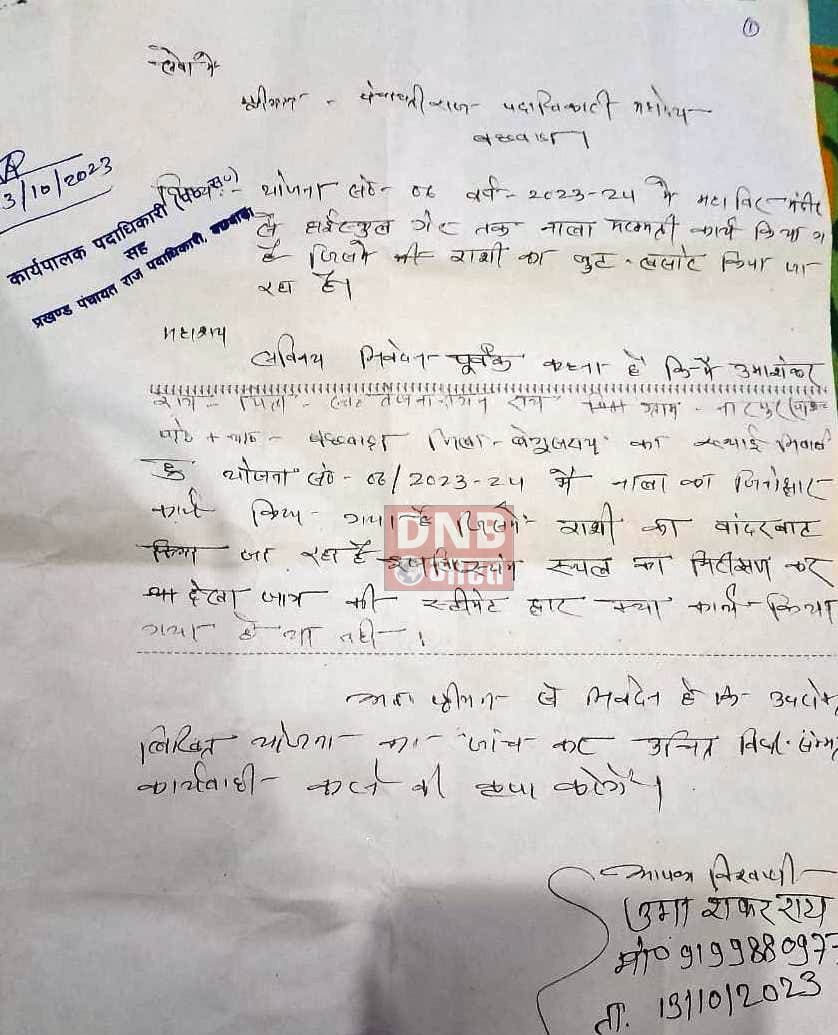 ①
सेवा में
श्रीमान - पंचायती राज पदाधिकारी महोदय
बछवाड़ा।
3/10/2023
कार्यपालक पदाधिकारी (पं०स०)
सह
प्रखण्ड पंचायत राज पदाधिकारी, बछवाड़ा
विषय:- योजना सं०- 06 वर्ष - 2023-24 में महाविर मंदीर
से हाईस्कुल गेट तक नाला मरम्मती कार्य किया ग
है जिसमे की राशी का लुट-खसोट किया जा
रहा है।
महाशय
सविनय निवेदन पूर्वक कहना है कि मैं उमाशंकर
राय - पिता - स्व० राय ग्राम -
पो० + था० - बछवाड़ा जिला - बेगुसराय का स्थाई निवासी
हुँ योजना सं० - 06/2023-24 में नाला का जिर्णोद्धार
कार्य किया गया है जिसमें राशी का बांदरबाट
किया जा रहा है स्थल का निरीक्षण कर
देखा जाय की स्टीमेट द्वारा क्या कार्य किया
गया है या नही।
DNB
Bharat
अतः श्रीमान से निवेदन है कि उपरोक्त
लिखित योजना का जांच कर उचित विधी-संम्मत
कार्यवाही करने की कृपा करेगें।
आपका विश्वासी
उमा शंकर राय
मो० 919988097
ता. 13/10/2023